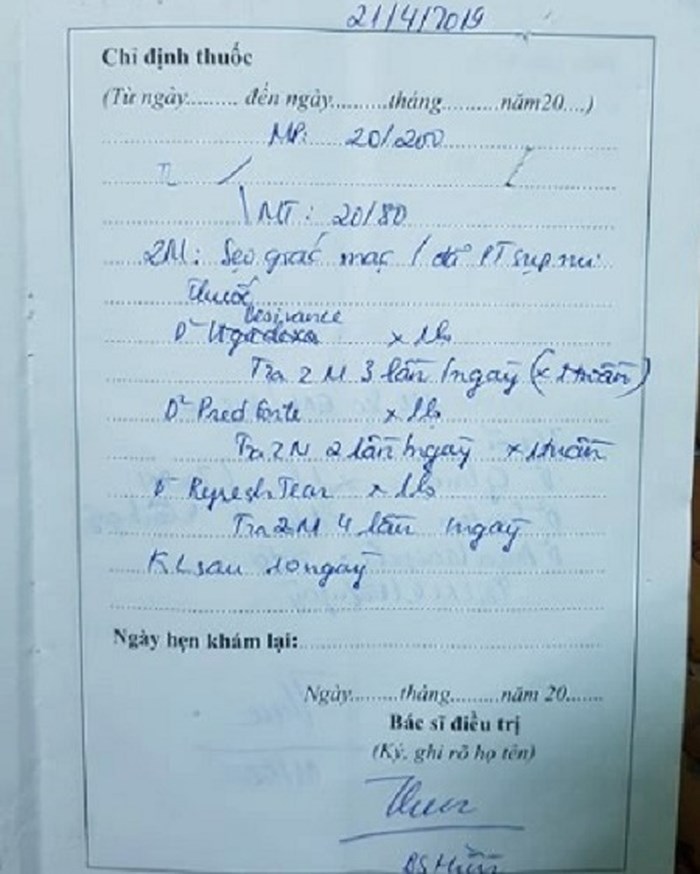 21/4/2019
Chỉ định thuốc
(Từ ngày......... đến ngày..........tháng..........năm20....)
MP: 20/200
MT: 20/80
2M: Sẹo giác mạc / đã PT sụp mi
Thuốc
Besivance
D² x 1lọ
Tra 2M 3 lần /ngày (x 1 tuần)
D² Pred forte x 1lọ
Tra 2M 2 lần /ngày x 1 tuần
D² Refresh Tear x 1lọ
Tra 2M 4 lần ngày
KL sau 10 ngày
Ngày hẹn khám lại:
Ngày.........tháng.........năm 20.......
Bác sĩ điều trị
(Ký, ghi rõ họ tên)